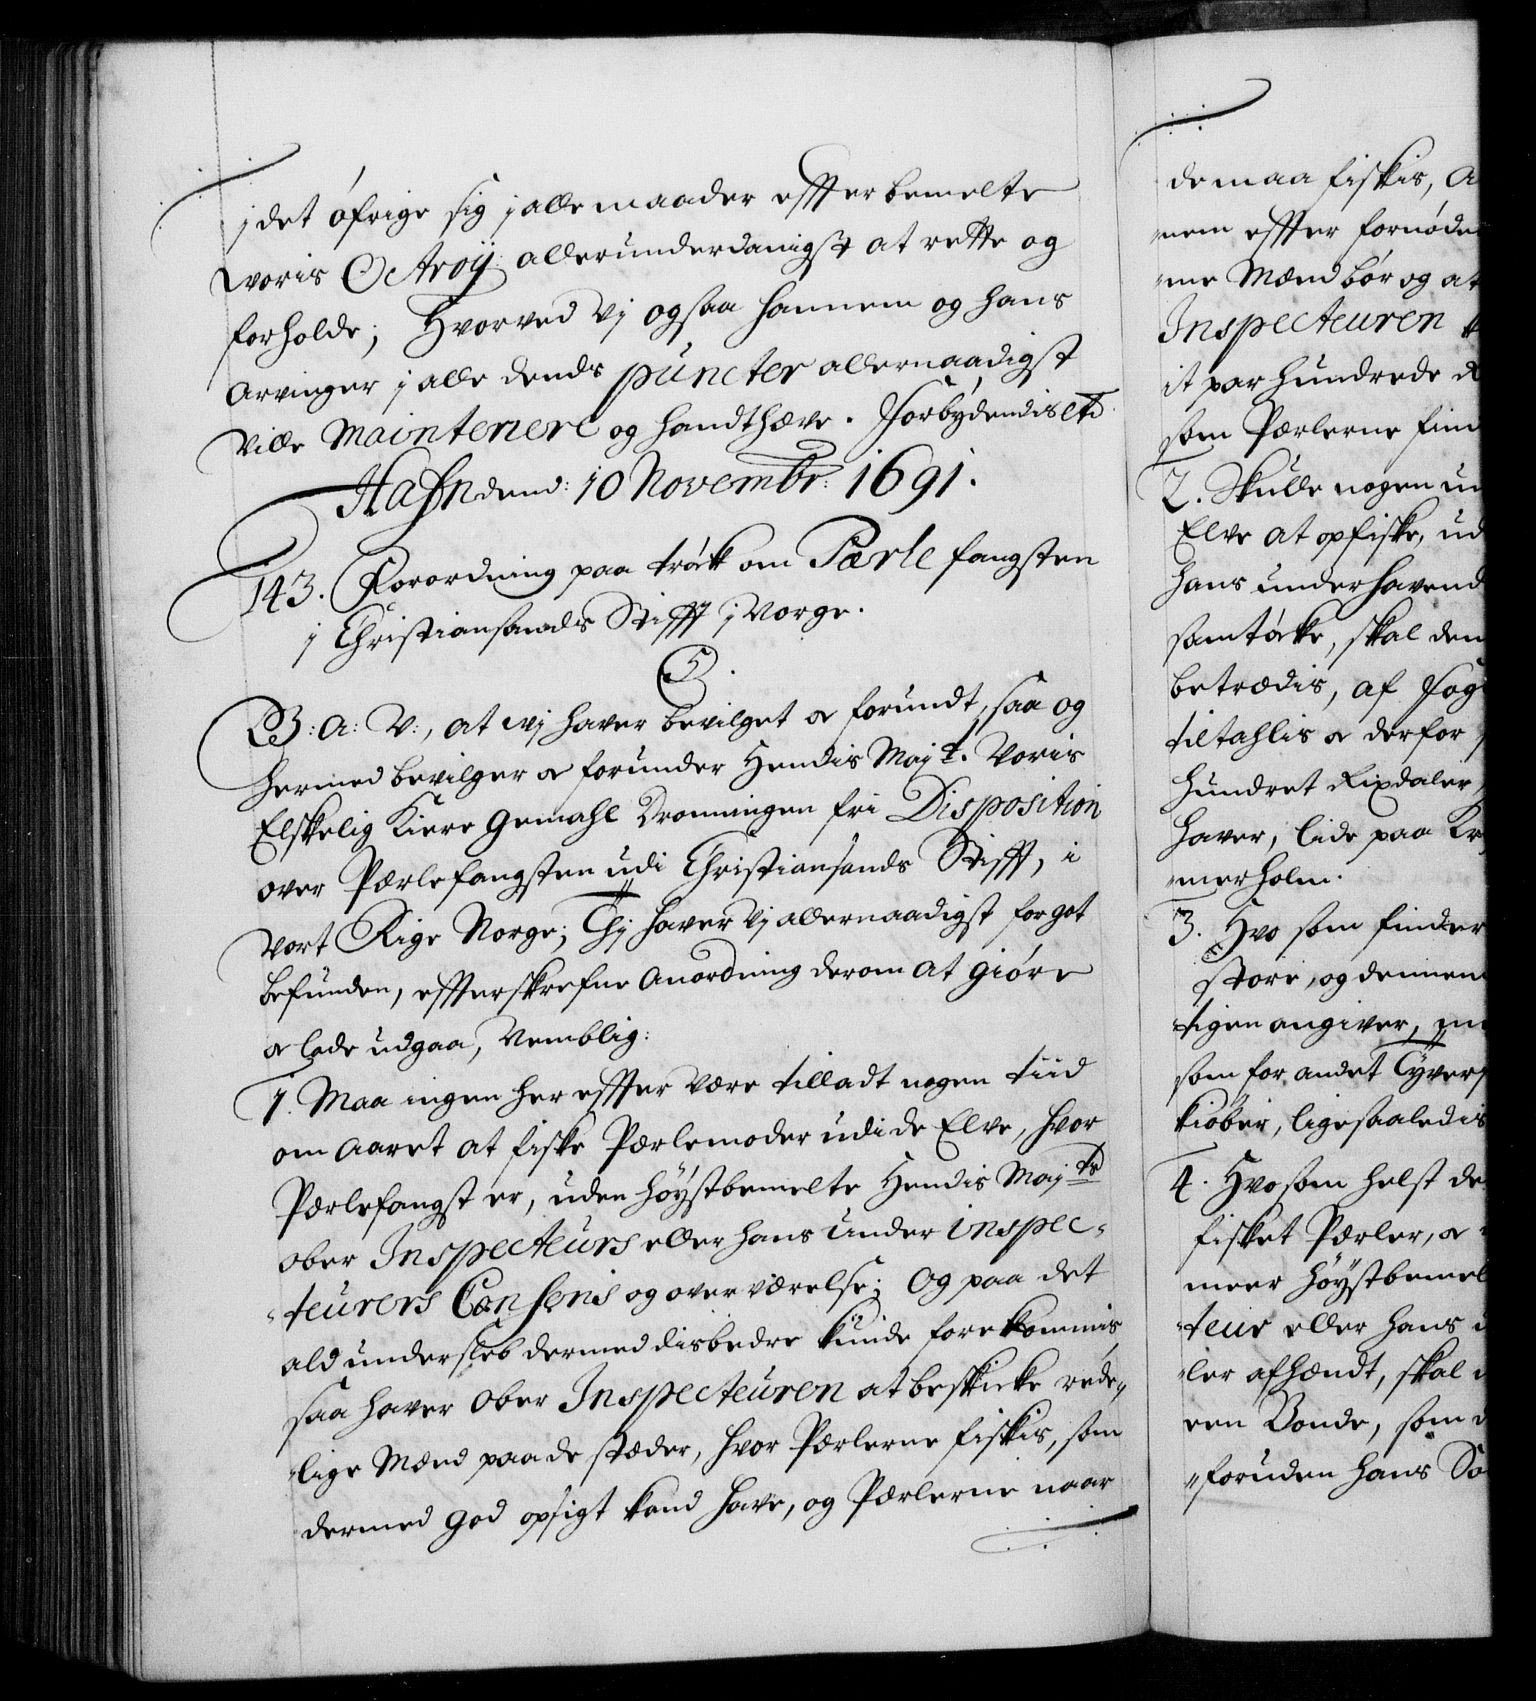 j det öfrige sig j alle maader effterbemelte
voris Octroij allerunderdanigst at rette og
forholde; Hvorved Vj ogsaa hannem og hans
Arvinger j alle dends puncter allernaadigst
Ville Maintenere og handthæve. Forbydendis etc
Hafn dend: 10 Novembr: 1691.
143. Forordning paa tröck om Pærle fangsten
j Christiansands Stifft j Norge.
C5.
G: A: V:, at wj hafver bevilget oc forundt, saa og
hermed bevilger oc forunder Hendis Mayt. Voris
Elskelig Kiere Gemahl Dronningen fri Disposition
over Pærlefangsten udi Christiansands Stifft, i
Vort Rige Norge; Thj hafver Vj allernaadigst for got
befunden, effterskrefne Anordning derom at giöre
oc lade udgaa, Nemblig:
1. Maa ingen her effter være tilladt nogen tiid
om Aaret at fiske Pærlemoder udi de Elve, hvor
Pærlefangst er, uden höystbemelte Hendis Mayts
ober Inspecteurs eller hans Under inspec-
-teurers Consens og overværelse; Og paa det
ald underslæb dermed disbedre kunde forekommis,
saa hafver Ober Inspecteuren at beskicke rede-
-lige Mænd paa de stæder, hvor Pærlerne fiskis, som
dermed god opsigt kand have, og Pærlerne naar
de maa fiskis, A
-nem effter fornöde
-me Mænd bör og at
Inspecteuren
it par hundrede
som Pærlerne find
2. Skulle nogen un
Elve at opfiske, ud
hans underhavend
samtöcke, skal den
betrædis, af Fog
tiltahlis oc derfor
hundret Rixdaler
hafver, lide paa Kr
-merholm.
3. Hvo som finder
store, og dennem
-tigen angiver, m
som for andet Tyver
kiöber, ligesaaledis
4. Hvo som helst de
fisket Pærler, oc
meer höystbemel
-teur eller hans
-ler afhændt, skal
een Bonde, som
-foruden hans